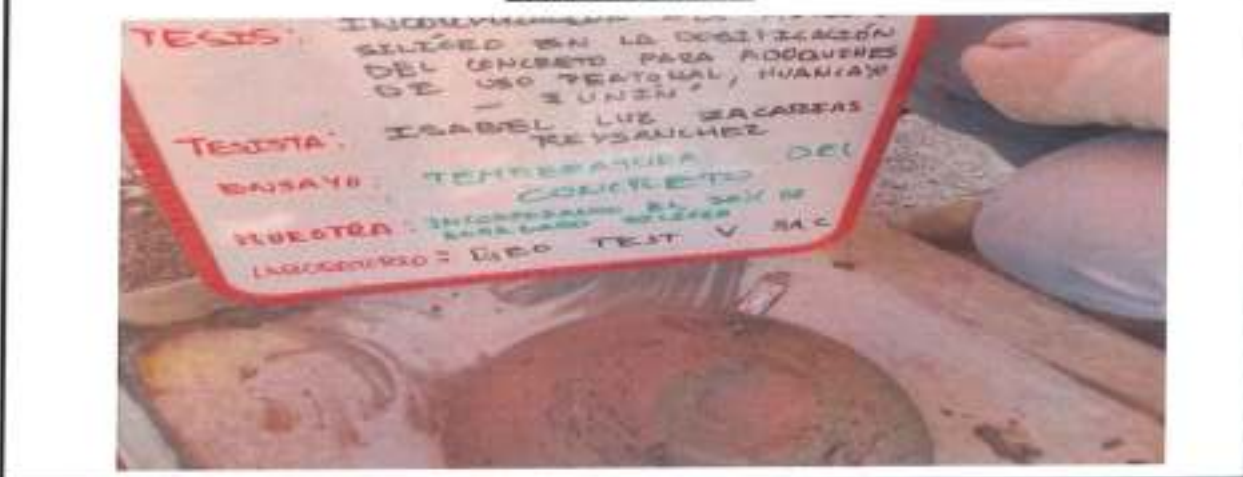 TESIS:
SILÍCEO EN LA DOSIFICACIÓN
DEL CONCRETO PARA ADOQUINES
DE USO PEATONAL, HUANCAYO
- JUNÍN"
TESISTA: ISABEL LUZ ZACARIAS
REYSANCHEZ
ENSAYO: TEMPERATURA DEL
CONCRETO
MUESTRA: INCORPORANDO EL 20% DE
AGREGADO SILÍCEO
LABORATORIO: TEST V SAC